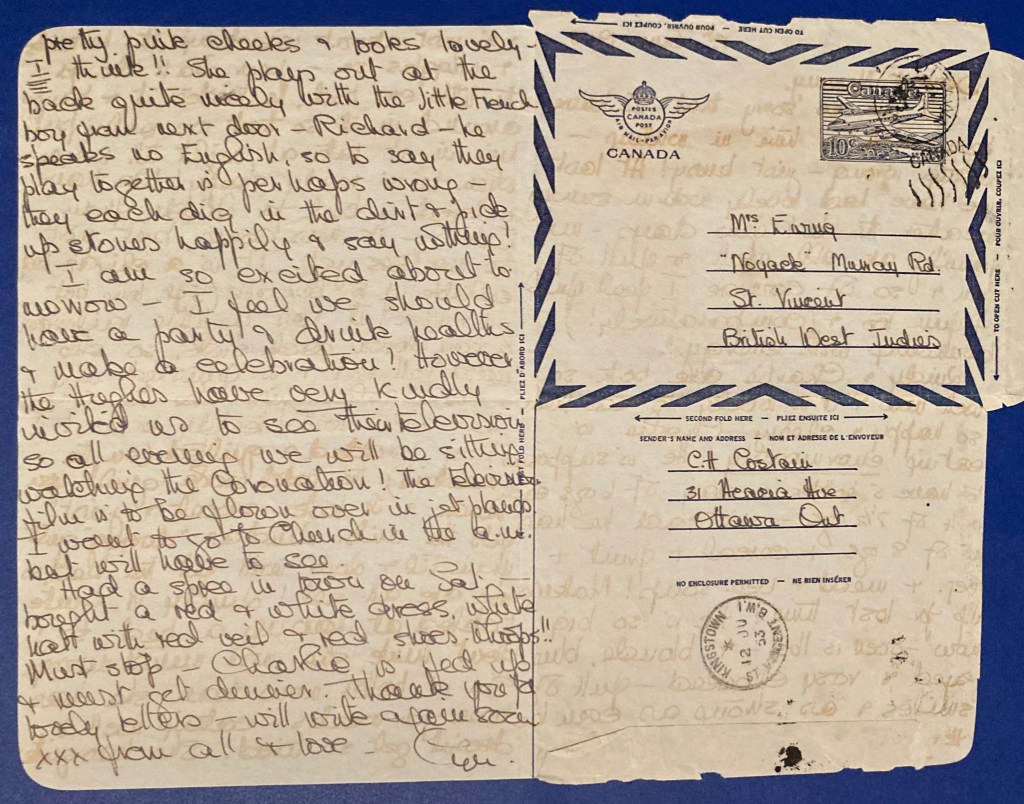 pretty pink cheeks & looks lovely -
I think!! She plays out at the
back quite nicely with the little French
boy from next door - Richard - he
speaks no English, so to say they
play together is perhaps wrong -
they each dig in the dirt & pick
up stones happily & say nothing!
I am so excited about to-
morrow - I feel we should
have a party & drink healths
& make a celebration! However
the Hughes have very kindly
invited us to see their television
so all evening we will be sitting
watching the Coronation! The television
film is to be flown over in jet planes
I want to go to Church in the a.m.
but will have to see.
Had a spree in town on Sat. -
bought a red & white dress, white
hat with red veil & red shoes. Whoops!!
Must stop. Charlie is fed up
& must get dinner. Thank you for
lovely letters - will write again soon
xxx from all & love -
TO OPEN CUT HERE — POUR OUVRIR, COUPEZ ICI
POSTES
CANADA
POST
AIR MAIL - PAR AVION
CANADA
Canada
10¢
CANADA
Mrs Ewing
"Noyade" Murray Rd.
St. Vincent
British West Indies
TO OPEN CUT HERE — POUR OUVRIR, COUPEZ ICI
FIRST FOLD HERE — PLIEZ D'ABORD ICI
SECOND FOLD HERE — PLIEZ ENSUITE ICI
SENDER'S NAME AND ADDRESS — NOM ET ADRESSE DE L'ENVOYEUR
C.H Costain
31 Acacia Ave
Ottawa Ont
NO ENCLOSURE PERMITTED — NE RIEN INSÉRER
KINGSTOWN
12 JU
53
ST VINCENT B.W.I.